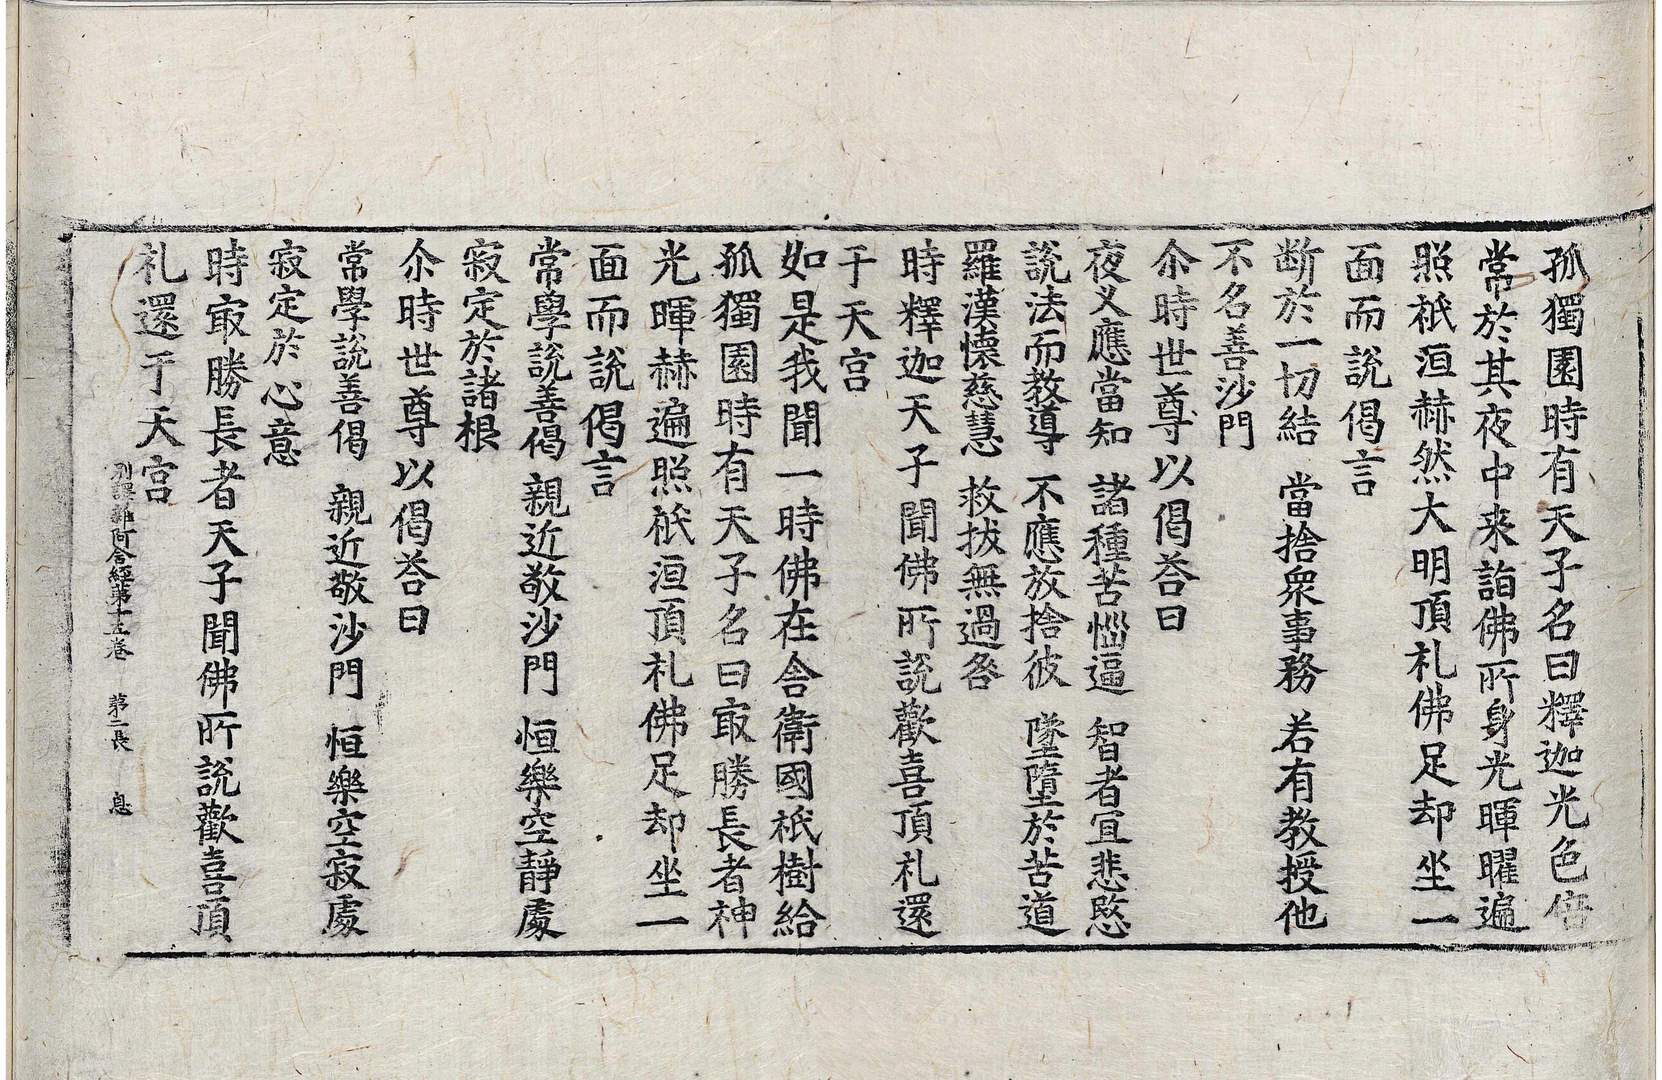 孤獨園時有天子名曰釋迦光色倍
常於其夜中来詣佛所身光暉曜遍
照祇洹赫然大明頂礼佛足却坐一
面而說偈言
断於一切結　當捨衆事務　若有教授他
不名善沙門
尒時世尊以偈荅曰
夜叉應當知　諸種苦惱逼　智者宜悲愍
說法而教導　不應放捨彼　墜墮於苦道
羅漢懷慈慧　救拔無過咎
時釋迦天子聞佛所說歡喜頂礼還
于天宫
如是我聞一時佛在舎衛國祇樹給
孤獨園時有天子名曰冣勝長者神
光暉赫遍照祇洹頂礼佛足却坐一
面而說偈言
常學說善偈　親近敬沙門　恒樂空靜處
寂定於諸根
尒時世尊以偈荅曰
常學說善偈　親近敬沙門　恒樂空寂處
寂定於心意
時冣勝長者天子聞佛所說歡喜頂
礼還于天宫
別譯雜阿含經第十五卷　第二張　息